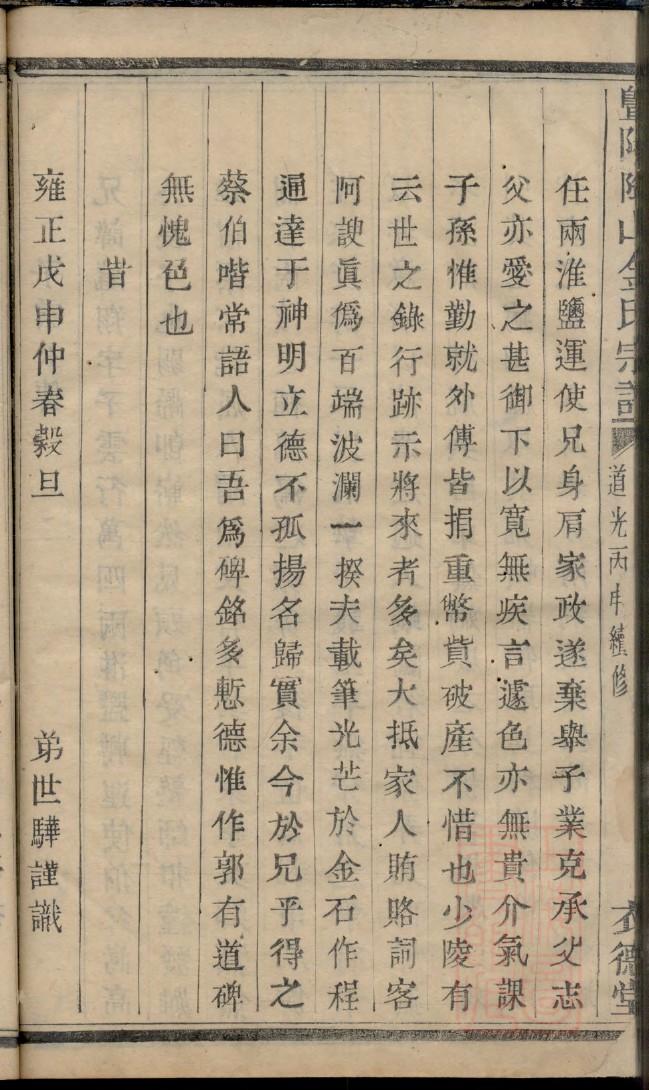 暨陽陶山金氏宗譜 道光丙申續修 衣德堂
任兩淮鹽運使兄身肩家政遂棄舉子業克承父志
父亦愛之甚御下以寬無疾言遽色亦無貴介氣課
子孫惟勤就外傅皆捐重幣貲破產不惜也少陵有
云世之錄行跡示將來者多矣大抵家人賄賂詞客
阿諛眞僞百端波瀾一揆夫載筆光芒於金石作程
通達于神明立德不孤揚名歸實余今於兄乎得之
蔡伯喈常語人曰吾爲碑銘多慙德惟作郭有道碑
無愧色也
昔
雍正戊申仲春穀旦 弟世驊謹識